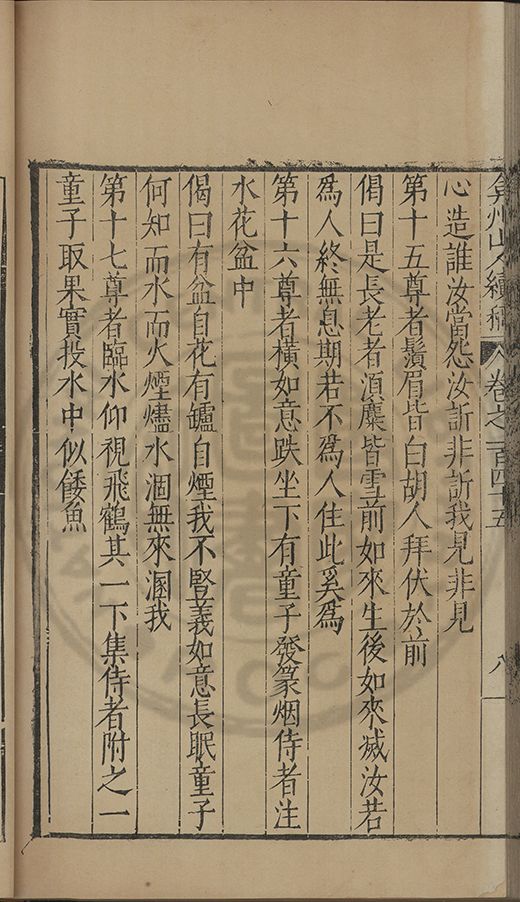 弇州山人續稿 卷之一百四十五 八
心造誰汝當怨汝訢非訢我見非見
第十五尊者鬚眉皆白胡人拜伏於前
偈曰是長老者須麋皆雪前如來生後如來滅汝若
爲人終無息期若不爲人住此奚爲
第十六尊者橫如意趺坐下有童子發篆烟侍者注
水花盆中
偈曰有盆自花有罏自煙我不豎義如意長眠童子
何知而水而火煙燼水涸無來溷我
第十七尊者臨水仰視飛鶴其一下集侍者附之一
童子取果實投水中似餧魚